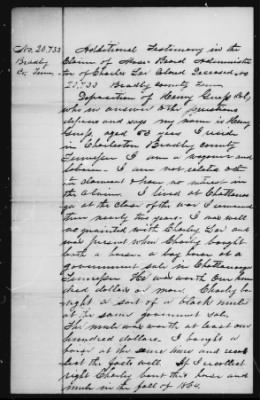 No. 20,733
Bradly
Co. Tenn.
Additional Testimony in the
Claim of Mose Bond Administra
tor of Charles Deceased, No
20,733 Bradly County Tenn
Deposition of Henry Col,
who in answer to the questions
deposes and says my name is Henry
aged 53 years I reside
in Charleston Bradly County
Tennessee I am a
I am not related
to claimant & have no interest in
the claim. I lived at Chattanoo
ga at the close of the war I remained
there nearly two years. I was well
acquainted with Charley and
was present when Charley bought
both a horse. a bay horse at a
government sale in Chattanooga
Tennessee He was worth One hun
dred dollars or more. Charley bo
ught a sort of a black mule
at the same government sale.
The mule was worth at least one
hundred dollars. I bought a
horse at the same time and
lect the facts well. If I recollect
right Charley bout this horse and
mule in the fall of 186